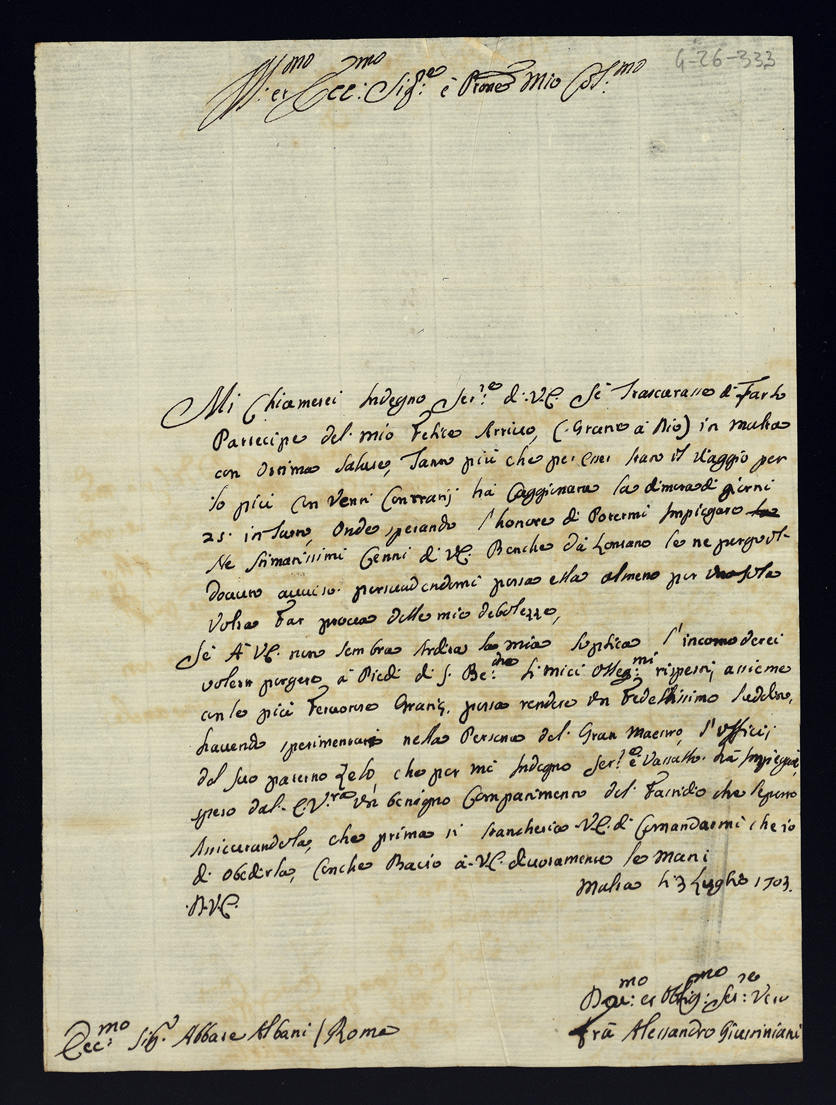 4-26-333
Ill:mo et Ecc:mo Sig:re è Prone Mio Col:mo
Mi Chiamerei Indegno Ser:re di V.E. Sè Trascurasse di Farlo
Partecipe del mio Felice Arrivo, (Grazie à Dio) in Malta
con Ottima Salute, Tanto più che per esser stato il Viaggio per
lo più con Venti Contrarij hà Caggionato la dimora di giorni
25 in Circa, Onde sperando l'honore di Potermi Impiegare
Ne Stimatissimi Cenni di V.E. Benche dà Lontano le ne porgo il
dovuto avviso persuadendomi possa ella almeno per una sola
Volta Far prova delle mie debolezze,
Sè A V.E. non sembra Ardita la mia Suplica l'incomoderei
volera porgere à Piedi di S. Be:dne li miei Osseq:mi rispetti, assieme
con le più Fervorose Gratie, possa rendere un Fedelissimo Suddito,
havendo sperimentato nella Persona del Gran Maestro, l'uffici,
del suo paterno Zelo che per mè Indegno Ser:re è Vassallo hà Impiegati,
spero dal E. V.ra un benigno Compatimento del Fastidio che le porto
Assicurandola, che prima si stancherà V.E. di Comandarmi che io
di Obedirla, Con che Bacio à V.E. divotamente le Mani
Malta li 3 Luglio 1703.
D.V.E.
Dev:mo et Oblig:mo Ser:re Vero
Frà Alessandro Giustiniani
Ecc:mo Sig:r Abbate Albani / Roma